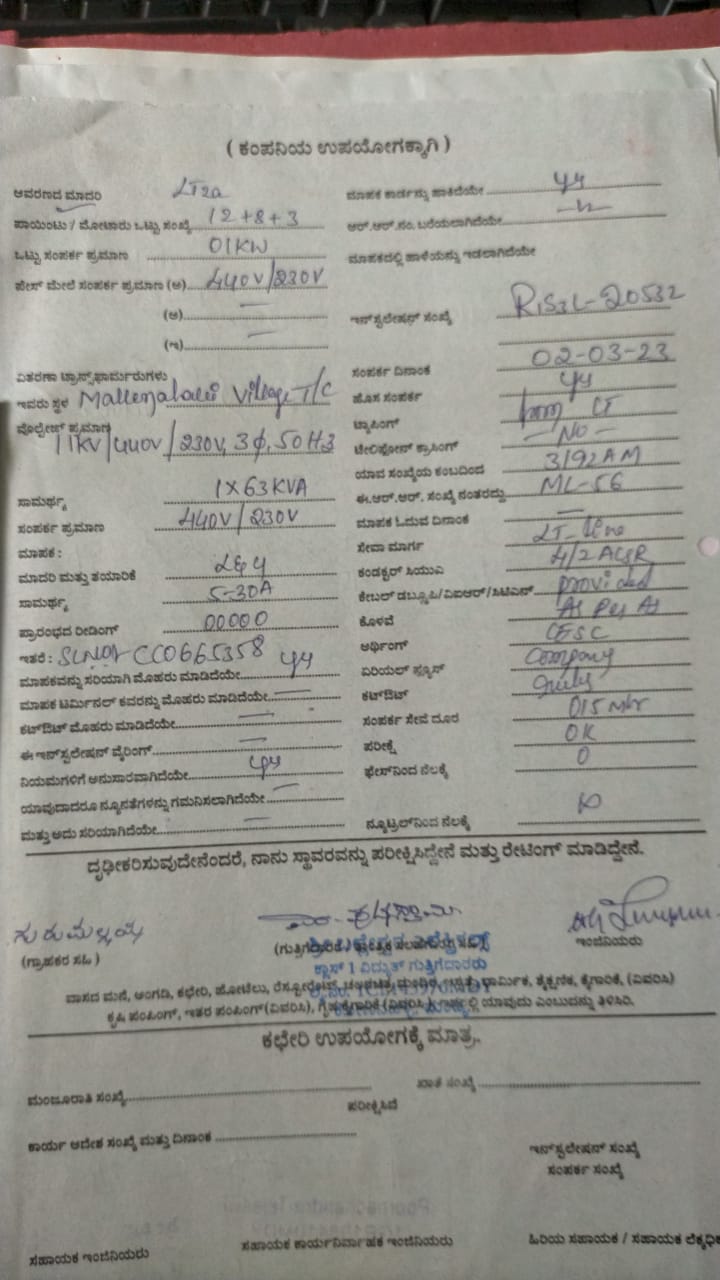 ( ಕಂಪನಿಯ ಉಪಯೋಗಕ್ಕಾಗಿ )
ಆವರಣದ ಮಾದರಿ LT2a
ಪಾಯಿಂಟು / ಮೋಟಾರು ಒಟ್ಟು ಸಂಖ್ಯೆ 12+8+3
ಒಟ್ಟು ಸಂಪರ್ಕ ಪ್ರಮಾಣ 01KW
ಪೇಸ್ ಮೇಲೆ ಸಂಪರ್ಕ ಪ್ರಮಾಣ (ಅ) 440V/230V
(ಆ) —
(ಇ) —
ವಿತರಣಾ ಟ್ರಾನ್ಸ್‌ಫಾರ್ಮರುಗಳು
ಇವರು ಸ್ಥಳ Village T/C
ವೊಲ್ಟೇಜ್ ಪ್ರಮಾಣ
11KV/440V/230V, 3ϕ, 50Hz
ಸಾಮರ್ಥ್ಯ 1X63KVA
ಸಂಪರ್ಕ ಪ್ರಮಾಣ 440V/230V
ಮಾಪಕ :
ಮಾದರಿ ಮತ್ತು ತಯಾರಿಕೆ
ಸಾಮರ್ಥ್ಯ 5-30A
ಪ್ರಾರಂಭದ ರೀಡಿಂಗ್ 00000
ಇತರೆ : CC0665358
ಮಾಪಕವನ್ನು ಸರಿಯಾಗಿ ಮೊಹರು ಮಾಡಿದೆಯೇ
ಮಾಪಕ ಟರ್ಮಿನಲ್ ಕವರನ್ನು ಮೊಹರು ಮಾಡಿದೆಯೇ —
ಕಟ್‌ಔಟ್ ಮೊಹರು ಮಾಡಿದೆಯೇ —
ಈ ಇನ್‌ಸ್ಟಲೇಷನ್ ವೈರಿಂಗ್ —
ನಿಯಮಗಳಿಗೆ ಅನುಸಾರವಾಗಿದೆಯೇ
ಯಾವುದಾದರೂ ನ್ಯೂನತೆಗಳನ್ನು ಗಮನಿಸಲಾಗಿದೆಯೇ —
ಮತ್ತು ಅದು ಸರಿಯಾಗಿದೆಯೇ —
ಮಾಪಕ ಕಾರ್ಡನ್ನು ಹಾಕಿದೆಯೇ
ಆರ್.ಆರ್.ನಂ. ಬರೆಯಲಾಗಿದೆಯೇ
ಮಾಪಕದಲ್ಲಿ ಹಾಳೆಯನ್ನು ಇಡಲಾಗಿದೆಯೇ
ಇನ್‌ಸ್ಟಲೇಷನ್ ಸಂಖ್ಯೆ RIS3L-20532
ಸಂಪರ್ಕ ದಿನಾಂಕ 02-03-23
ಹೊಸ ಸಂಪರ್ಕ
ಟ್ಯಾಪಿಂಗ್
ಟೆಲಿಫೋನ್ ಕ್ರಾಸಿಂಗ್ -NO-
ಯಾವ ಸಂಖ್ಯೆಯ ಕಂಬದಿಂದ 3192AM
ಈ.ಆರ್.ಆರ್. ಸಂಖ್ಯೆ ನಂತರದ್ದು ML-56
ಮಾಪಕ ಓದುವ ದಿನಾಂಕ —
ಸೇವಾ ಮಾರ್ಗ LT-line
ಕಂಡಕ್ಟರ್ ಸಿಯುವಿ 4/2 ACSR
ಕೇಬಲ್ ಡಬ್ಲೂಪಿ/ವಿಐಆರ್/ಸಿಟಿಎಸ್ provided
ಕೊಳವೆ As Per As
ಅರ್ಥಿಂಗ್ CESC
ಏರಿಯಲ್ ಫ್ಯೂಸ್ Company
ಕಟ್‌ಔಟ್
ಸಂಪರ್ಕ ಸೇವೆ ದೂರ 015 Mtr
ಪರೀಕ್ಷೆ OK
ಫೇಸ್‌ನಿಂದ ನೆಲಕ್ಕೆ 0
ನ್ಯೂಟ್ರಲ್‌ನಿಂದ ನೆಲಕ್ಕೆ
ದೃಢೀಕರಿಸುವುದೇನೆಂದರೆ, ನಾನು ಸ್ಥಾವರವನ್ನು ಪರೀಕ್ಷಿಸಿದ್ದೇನೆ ಮತ್ತು ರೇಟಿಂಗ್ ಮಾಡಿದ್ದೇನೆ.
ಗುರುಮಲ್ಲಯ್ಯ
(ಗ್ರಾಹಕರ ಸಹಿ)
ಇಂಜಿನಿಯರು
ಕ್ಲಾಸ್ 1 ವಿದ್ಯುತ್ ಗುತ್ತಿಗೆದಾರರು
ವಾಸದ ಮನೆ, ಅಂಗಡಿ, ಕಛೇರಿ, ಹೋಟೆಲು, ರೆಸ್ಟೋರೆಂಟ್, ಧಾರ್ಮಿಕ, ಶೈಕ್ಷಣಿಕ, ಕೈಗಾರಿಕೆ, (ವಿವರಿಸಿ)
ಕೃಷಿ ಪಂಪಿಂಗ್, ಇತರ ಪಂಪಿಂಗ್(ವಿವರಿಸಿ), ಗೃಹಕೈಗಾರಿಕೆ (ವಿವರಿಸಿ), ಇವುಗಳಲ್ಲಿ ಯಾವುದು ಎಂಬುದನ್ನು ತಿಳಿಸಿರಿ.
ಕಛೇರಿ ಉಪಯೋಗಕ್ಕೆ ಮಾತ್ರ.
ಮಂಜೂರಾತಿ ಸಂಖ್ಯೆ
ಖಾತೆ ಸಂಖ್ಯೆ
ಪರೀಕ್ಷಿಸಿದೆ
ಕಾರ್ಯ ಆದೇಶ ಸಂಖ್ಯೆ ಮತ್ತು ದಿನಾಂಕ
ಇನ್‌ಸ್ಟಲೇಷನ್ ಸಂಖ್ಯೆ
ಸಂಪರ್ಕ ಸಂಖ್ಯೆ
ಸಹಾಯಕ ಇಂಜಿನಿಯರು
ಸಹಾಯಕ ಕಾರ್ಯನಿರ್ವಾಹಕ ಇಂಜಿನಿಯರು
ಹಿರಿಯ ಸಹಾಯಕ / ಸಹಾಯಕ ಲೆಕ್ಕಧಿ